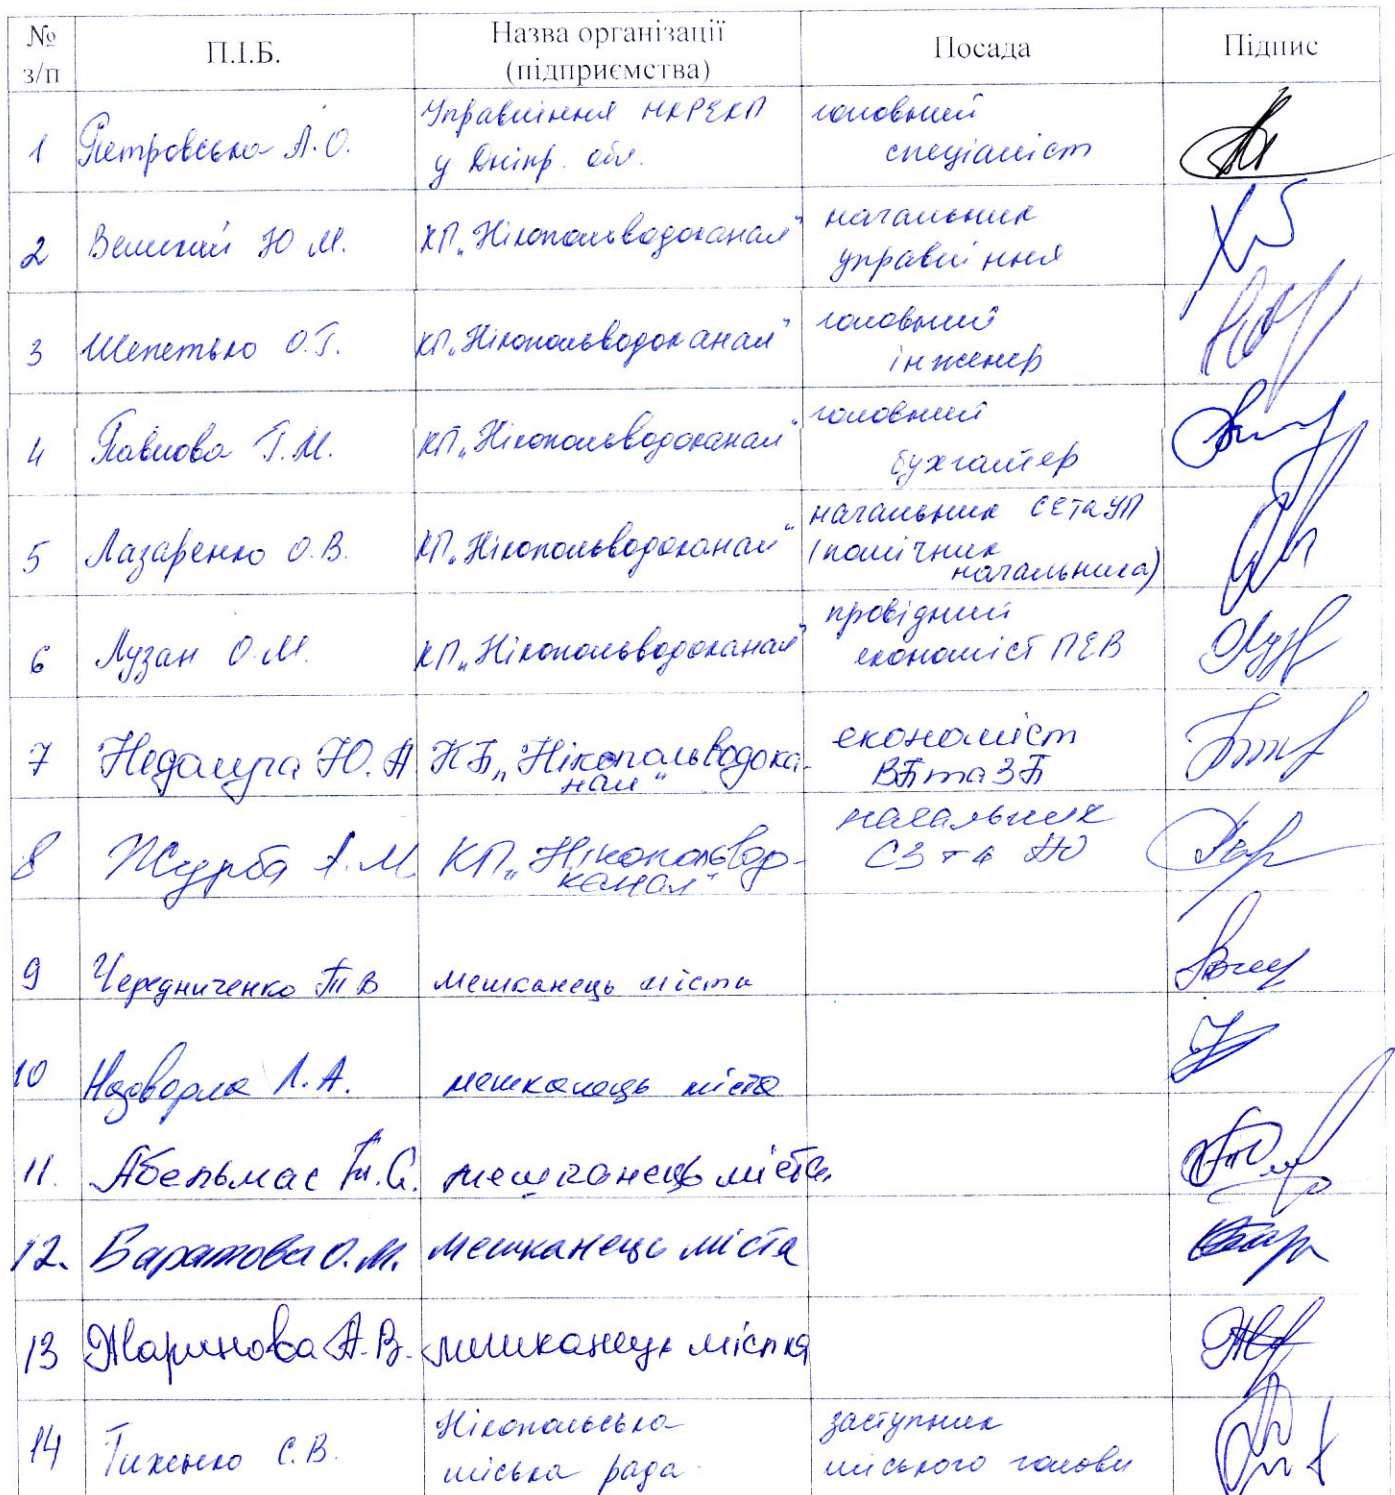 № з/п
П.І.Б.
Назва організації (підприємства)
Посада
Підпис
1 Петровська А.О. Управління НКРЕКП у Дніпр. обл. головний спеціаліст
2 Великий Ю.М. КП„Нікопольводоканал" начальник управління
3 Шепетько О.Г. КП„Нікопольводоканал" головний інженер
4 Павлова Г.М. КП„Нікопольводоканал" головний бухгалтер
5 Лазаренко О.В. КП„Нікопольводоканал" начальник СЕТаУП (помічник начальника)
6 Лузан О.М. КП„Нікопольводоканал" провідний економіст ПЕВ
7 Недолуга Ю.А КП„Нікопольводоканал" економіст ВПтаЗП
8 Журба А.М КП„Нікопольводканал" начальник СЗ та
9 Чередниченко Т В мешканець міста
10 Л.А. мешканець міста
11. Абельмас Т.С. мешканець міста
12. Баратова О.М. мешканець міста
13 Жаринова А.В. мешканець міста
14 Тиженко С.В. Нікопольська міська рада заступник міського голови